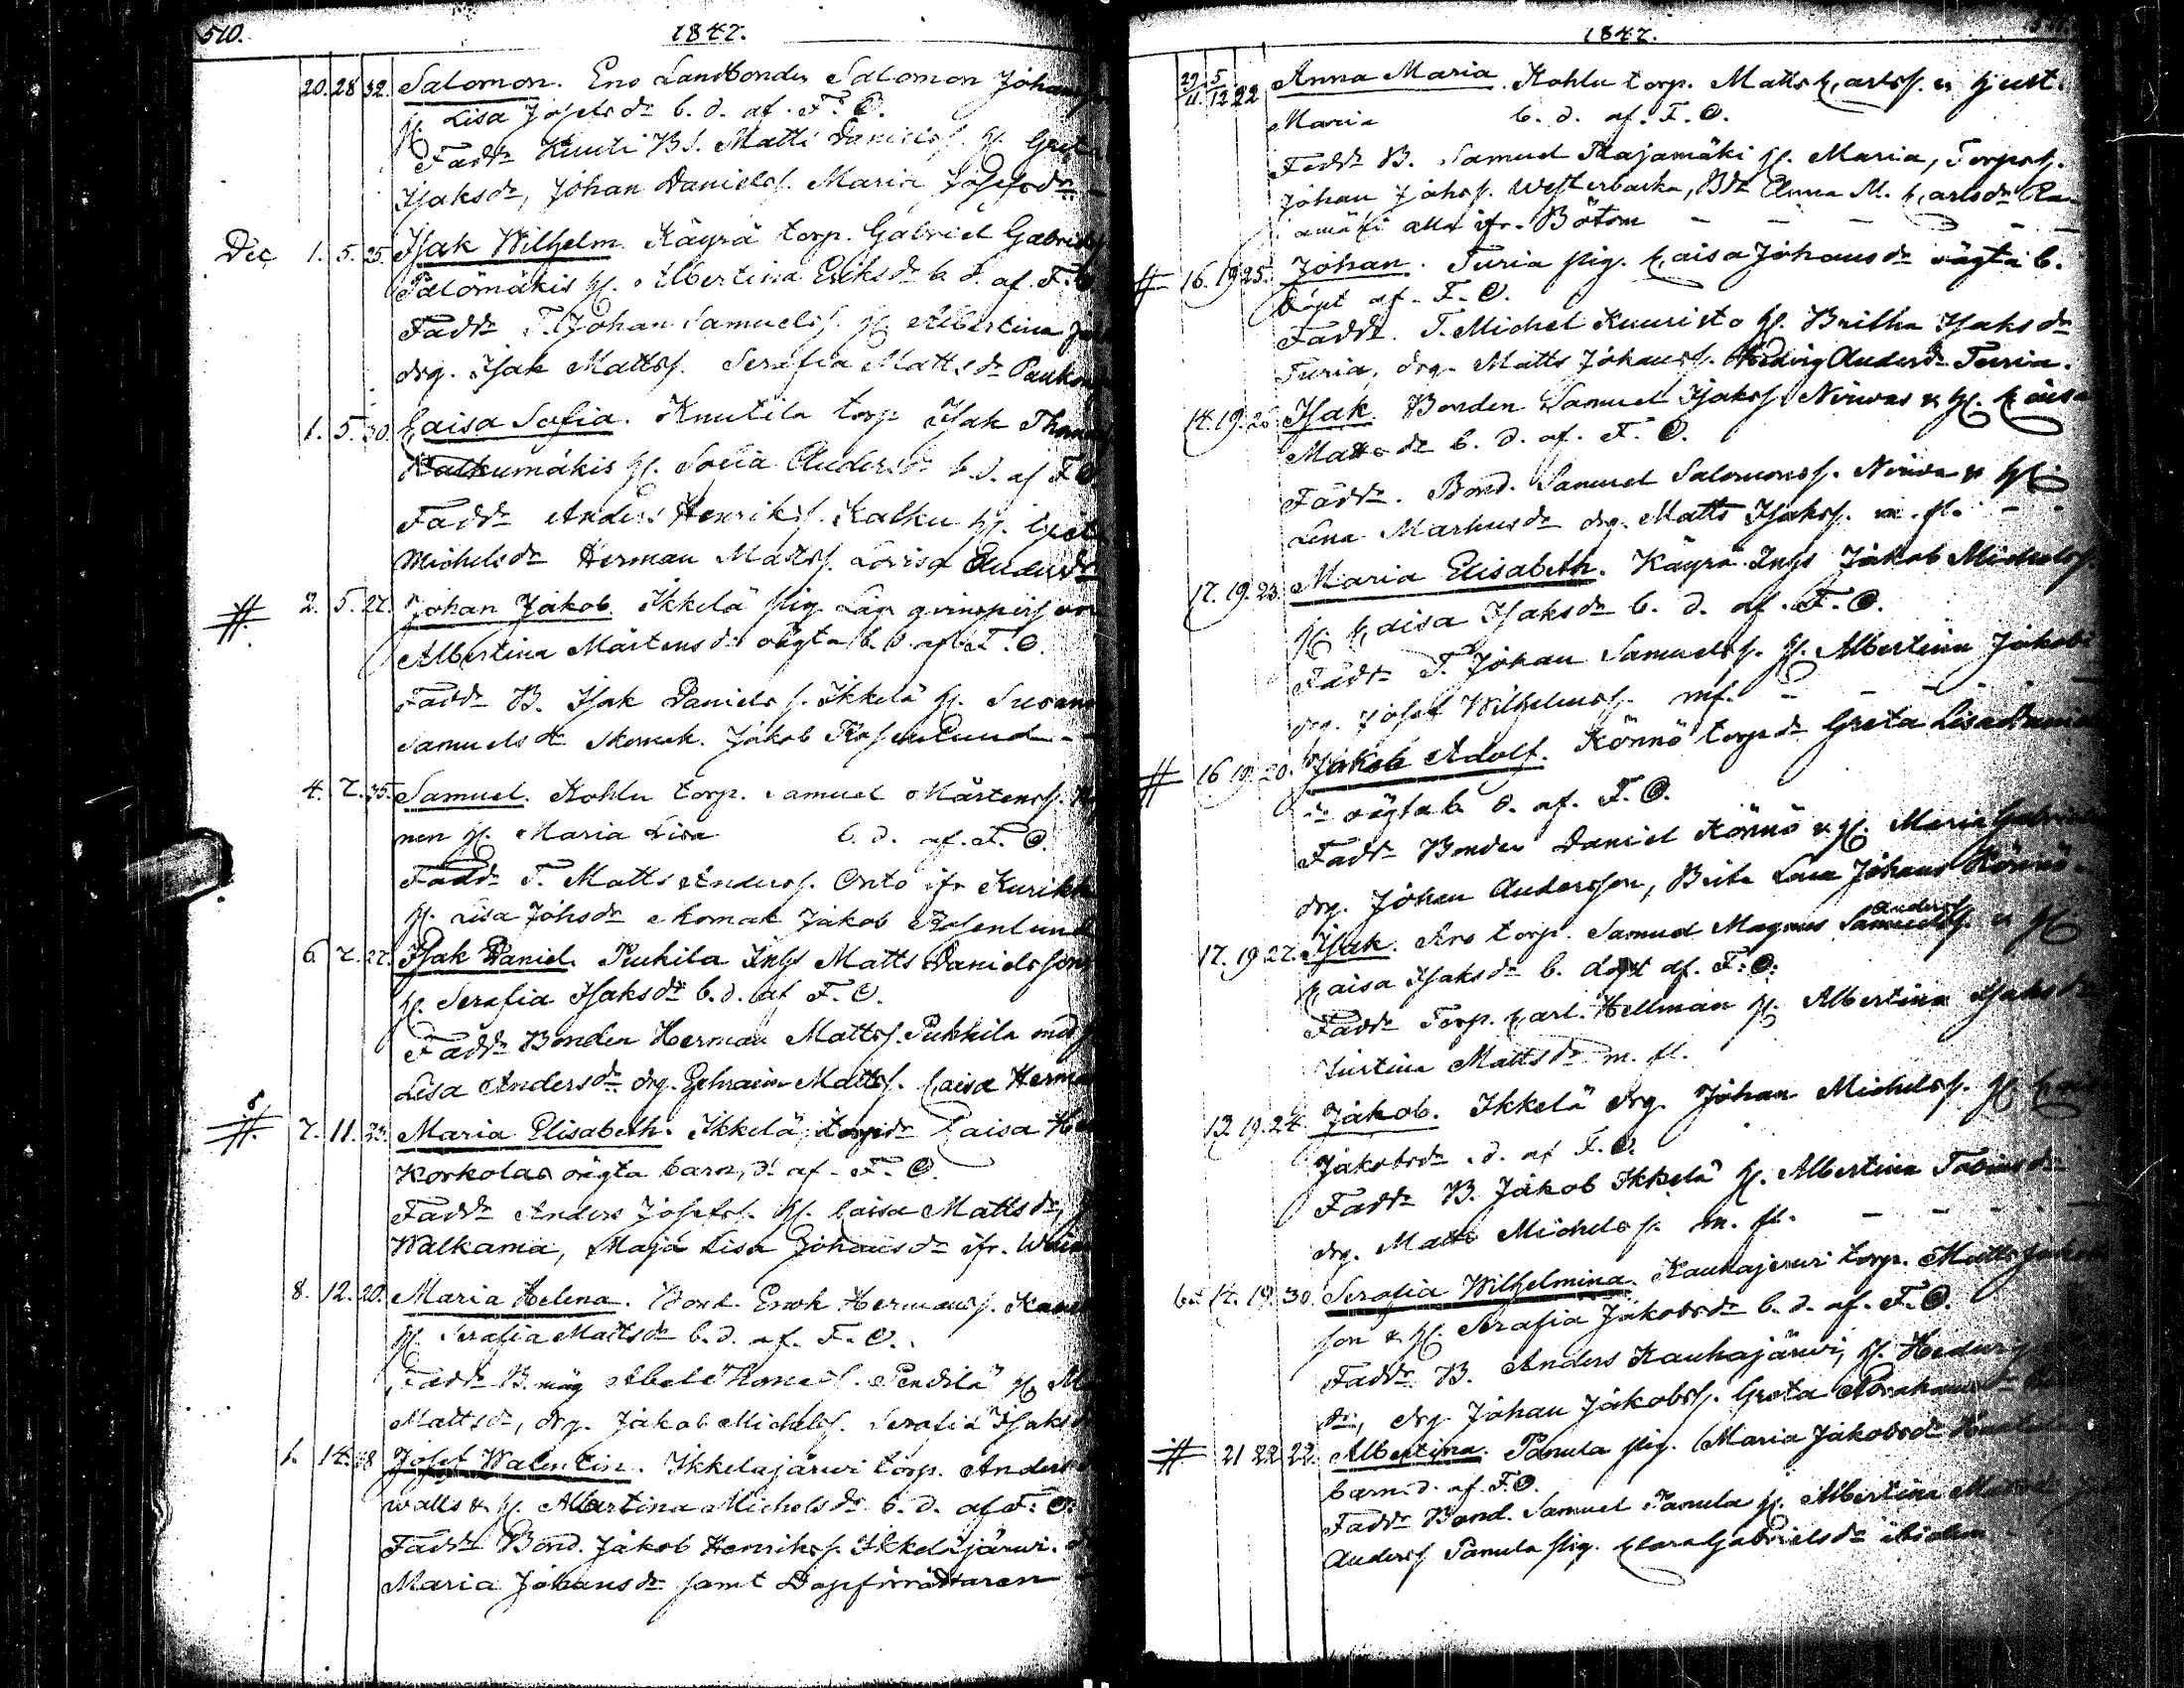 510.
1847.
20. 28 32. Salomon. Eno Landbonden Salomon Johans
H. Lisa Josefsdr b. d. af. F. O.
Faddr Knuti B. S. Matti Daniels. H. Greta
Isaksdr, Johan Daniels. Maria Josefsdr
Dec 1. 5. 25. Isak Wilhelm. Käyrä torp. Gabriel Gabriels
Palomäkis H. Albertina Eriksdr b. d. af. F. O.
Faddr T. Johan Samuels. H. Albertina
drg. Isak Mattss. Serafia Mattsdr
1. 5. 30. Caisa Sofia. Knutila torp Isak Thom
Kalkumäkis H. Sofia Andersdr b. d. af F. O.
Faddr Anders Henriks. Kalku H. Greta
Michelsdr Herman Mattss. Lovisa Andersdr
# 2. 5. 27. Johan Jakob. Ikkelä pig.
Albertina Mårtensdr oägta b. d. af F. O.
Faddr B. Isak Daniels. Ikkelä H. Susanna
Samuelsdr Skomak. Jakob Rosenlund
4. 7. 35. Samuel. Kohlu torp. Samuel Mårtenss.
nen H. Maria Lisa b. d. af. F. O.
Faddr T. Matts Anderss. Onto ifr Kurikka
H. Lisa Johsdr Skomak Jakob Rosenlund
6. 7. 27. Isak Daniel. Puhila Inhs Matts Danielsson
H. Serafia Isaksdr b. d. af F. O.
Faddr Bonden Herman Mattss. Puhkila med
Lisa Andersdr drg. Ephraim Mattss. Caisa Herma
# 7. 11. 23. Maria Elisabeth. Ikkelä torpdr Caisa
Korkolas oägta barn, d. af. F. O.
Faddr Anders Josefss. H. Caisa Mattsdr,
Walkama, Maja Lisa Johansdr ifr.
8. 12. 20. Maria Helena. Bond. Enok Hermanss.
H. Serafia Mattsdr b. d. af. F. O.
Faddr B. måg Abel Thomass. Pendilä H.
Mattsdr, drg. Jakob Michelss. Serafia Isaks
1. 14. 28 Josef Walentin. Ikkelajärwi torp. Anders
walls & H. Albertina Michelsdr b. d. af F. O.
Faddr Bond. Jakob Henrikss. Ikkeläjärwi.
Maria Johansdr samt Dopförrättaren
1847.
29/11. 5/12 22 Anna Maria. Kohlu torp. Matts Carlss. & Hust.
Maria b. d. af. F. O.
Faddr B. Samuel Rajamäki H. Maria, Torpss.
Johan Johss. Westerbacka, Bdr Anna M. Carlsdr Ra
amäki alla ifr. Bötom
# 16. 19 25. Johan. Turia pig. Caisa Johansdr oägta b.
döpt af. F. O.
Faddr. T. Michel Kuuristo H. Britha Isaksdr
Turia, drg. Matts Johanss. Hedvig Andersdr Turia.
14. 19. 26. Isak. Bonden Samuel Isakss. Nirwas & H. Caisa
Mattsdr b. d. af. F. O.
Faddr. Bond. Samuel Salomonss. Nirwa & H.
Lena Markusdr drg. Matts Isakss. m. fl.
17. 19. 23. Maria Elisabeth. Käyrä Inhs Jakob Michelss.
H. Caisa Isaksdr b. d. af. F. O.
Faddr T. Johan Samuelss. H. Albertina Jakobs
drg. Josef Wilhelmss. mf.
# 16 19. 20. Jakob Adolf. Könnö torpdr Greta Lisa
dr oägta b. d. af. F. O.
Faddr Bonden Daniel Könnö & H. Maria Gabriels
drg. Johan Andersson, Brita Lena Johans Könnö
17. 19 27. Isak. Aro torp. Samuel Magnus Samuelss. Anderss & H.
Caisa Isaksdr b. döpt af. F. O.
Faddr Torp. Carl. Hellman H. Albertina Isaksdr
Justina Mattsdr m. fl.
13 19. 24. Jakob. Ikkelä drg. Johan Michelss. H.
Jakobsdr. d. af F. O.
Faddr B. Jakob Ikkelä H. Albertina Tobiasdr
drg. Matts Michelss. m. fl.
14. 19. 30. Serafia Wilhelmina. Kauhajerwi torp. Matts Jakob
son & H. Serafia Jakobsdr b. d. af. F. O.
Faddr B. Anders Kauhajärwi, H. Hedwig
dr, drg Johan Jakobss. Greta Abrahamsdr
# 21 22 22. Albertina. Panula pig. Maria Jakobsdr
barn. d. af. F. O.
Faddr Bond. Samuel Panula H. Albertina
Anderss Panula pig. Clara Gabrielsdr ibidem